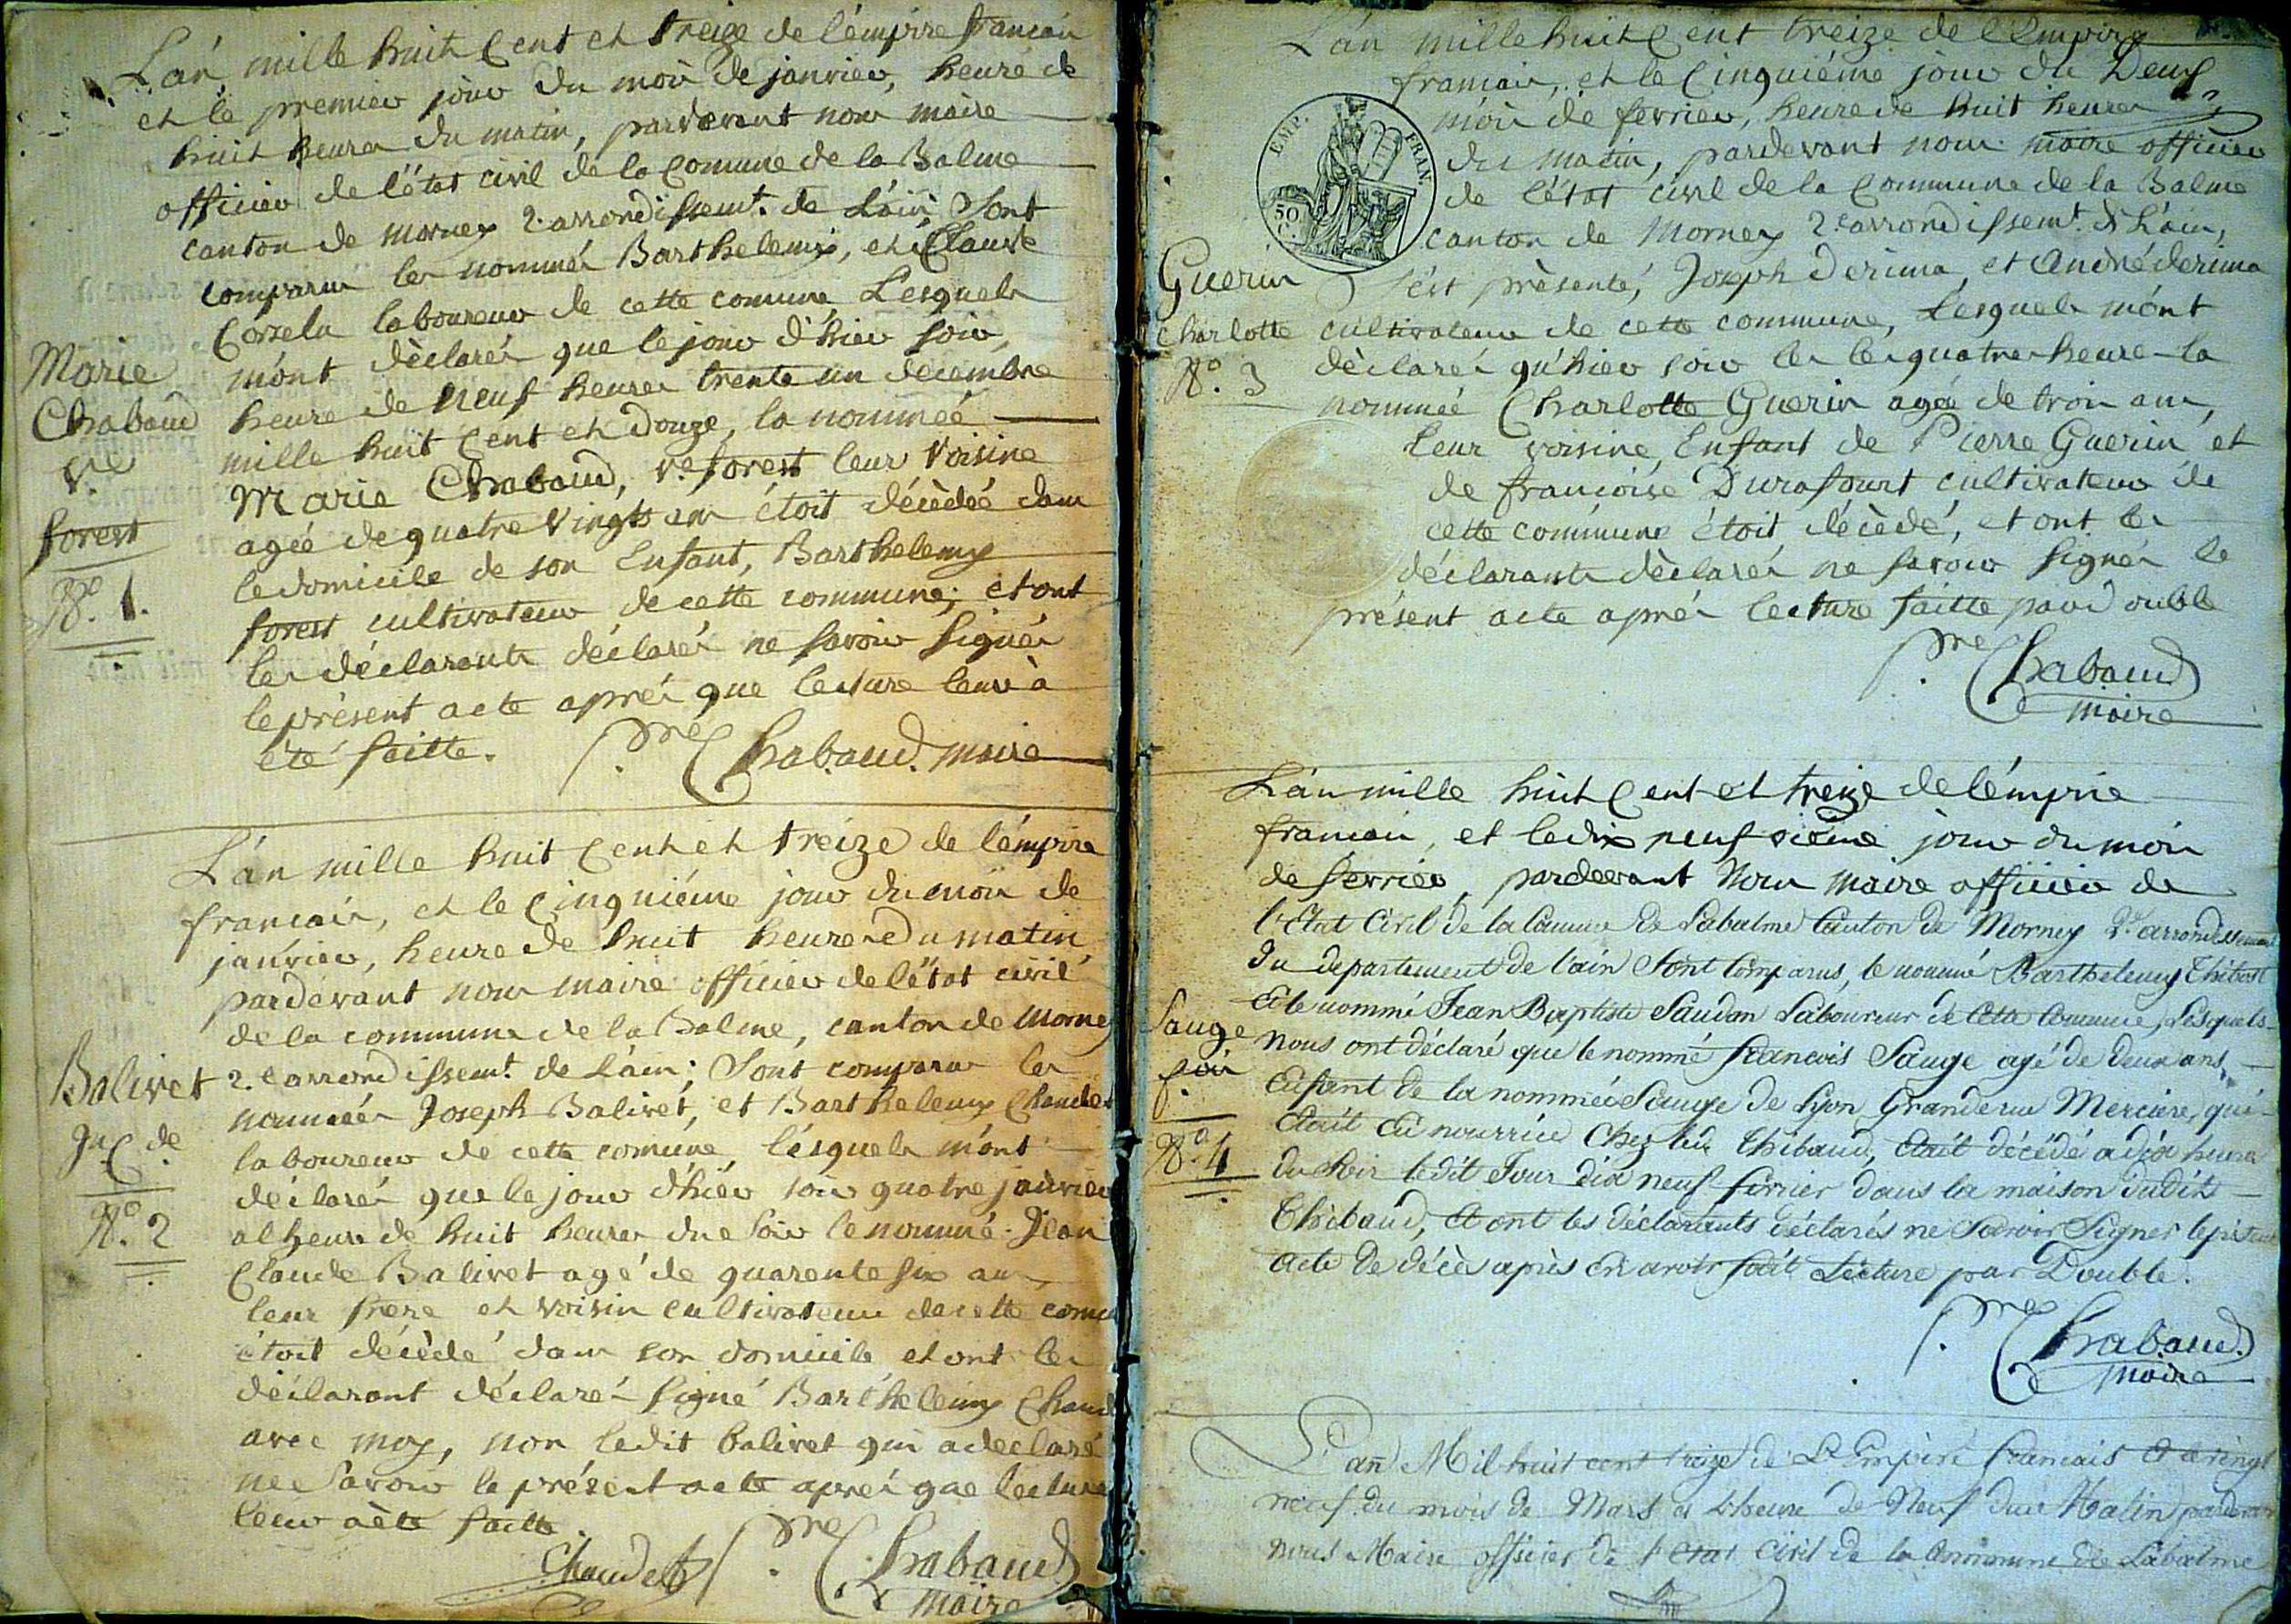 L'án mille huit Cent et treize de lémpire francais
et le premier jour du mois de janvier, heure de
huit heures du matin, pardevant nous maire
officier de létat civil de la Comune de la Balme
canton de Mornex 2.e arrondissemt. de L'ain, Sont
comparus les nommés Barthelemy, et Claude
laboureur de cette comune, Lesquels
m'ont dèclarés que le jour d'hier soir,
heure de neuf heures trente un décembre
mille huit Cent et Douze, la nommée
Marie Chabaud, Ve. forest leur Voisine
Marie
Chabaud
Ve
forest
No. 1.
agée de quatre Vingts ans étoit décèdeé dans
le domicile de son Enfant, Barthelemy
forest cultivateur de cette commune; et ont
les déclarants déclarés ne Savoir Signér
le présent acte aprés que lecture leur à
été faitte.
Pre Chabaud. maire
L'án mille huit Cent et treize de lémpire
francais, et le Cinquiéme jour du mois de
janvier, heure de huit heures du matin
pardevant nous maire officier de létat civil
de la commune de la Balme, canton de Morne
2.e arrondissemt. de L'ain; Sont comparus les
nommés Joseph Balivet, et Barthelemy Chaudet
Balivet
Jn C. de
No. 2
laboureur de cette comune, lésquels m'ont
déclarés que le jour d'hiér soir quatre janvier
a lheure de huit heures du Soir le nommé Jean
Claude Balivet agé de quarente six ans
leur frere et voisin cultivateur de cette comu
étoit décèdé dans son domicile et ont les
déclarant déclarés Signé Barthélemy Chaud
avec moy, non ledit balivet qui a declaré
ne Savoir le présent acte aprés que lecture
leur a été faitte.
Chaudet Pre Chabaud
maire
L'án mille huit Cent treize de l'Empire
francais, et le Cinquiéme jour du Deux
mois de fevrier, heure de huit heures
du matin, pardevant nous maire officier
de létat civil de la Commune de la Balme
canton de Mornex 2.e arrondissemt. de L'ain,
EMP. FRAN.
50
C.
Guerin
charlotte
No. 3
S'est présenté, Joseph Derima, et André derima
cultivateur de cette commune, Lesquels m'ont
dèclarés qu'hier soir les les quatre heure la
nommeé Charlotte Guerin agée de trois ans,
leur voisine, Enfant de Pierre Guerin et
de francoise Durafourt cultivateur de
cette commune étoit décèdé, et ont les
déclarants dèclarés ne Savoir Signér le
présent acte aprés lecture faitte par double
Pre Chabaud
maire
L'án mille huit Cent et treize de lémpire
francais, et le dix neuf vieme jour du mois
de fevrier, pardevant Nous maire officier de
l'Etat Civil de la Comune de Labalme Canton de Mornex 2.e arrondissement
Du departement de l'ain Sont Comparus, le nommé Barthelemy Thibost
Et le nommé Jean Baptiste Saudan Laboureur de Cette Comune, Lesquels
Nous ont déclaré que le nommé francois Sauge agé de deux ans,
Sauge
fois
No. 4
Enfant de la nommée Sauge de Lyon Grande rue Merciere, qui
Etait En nourrice Chez led. Thibaud, Etait décédé a dix heures
du Soir ledit Jour dix neuf fevrier dans la maison dudit
Thibaud, Et ont les déclarants déclarés ne Savoir Signer le présent
acte De décès après En avoir fait Lecture par Double.
Pre Chabaud.
maire
L'an Mil huit cent treize de L'Empire francais Et le vingt
neuf du mois de Mars a L'heure de Neuf du Matin pardevant
nous Maire officier de l'Etat Civil de la Commune de Labalme